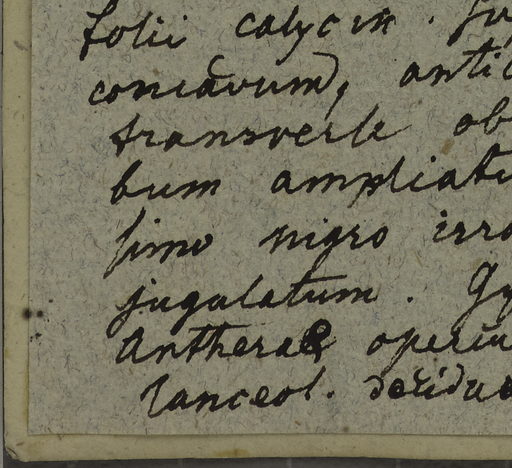 folii calycin. su
concavum, antic
transverse ob
bum ampliatu
simo nigro irro
jugulatum. Gy
Antherae opercu
lanceol. decidue